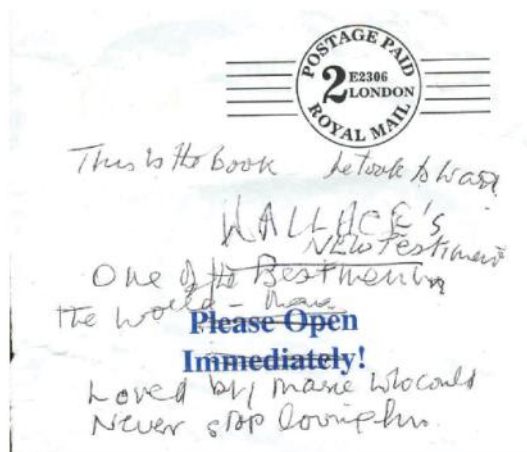 POSTAGE PAID
2 E2306
LONDON
ROYAL MAIL
This is the book he took to war
WALLACE's
NEW Testiment
One of the Best men in
the world - Marie
Please Open
Immediately!
Loved by Marie who could
Never stop loving him.